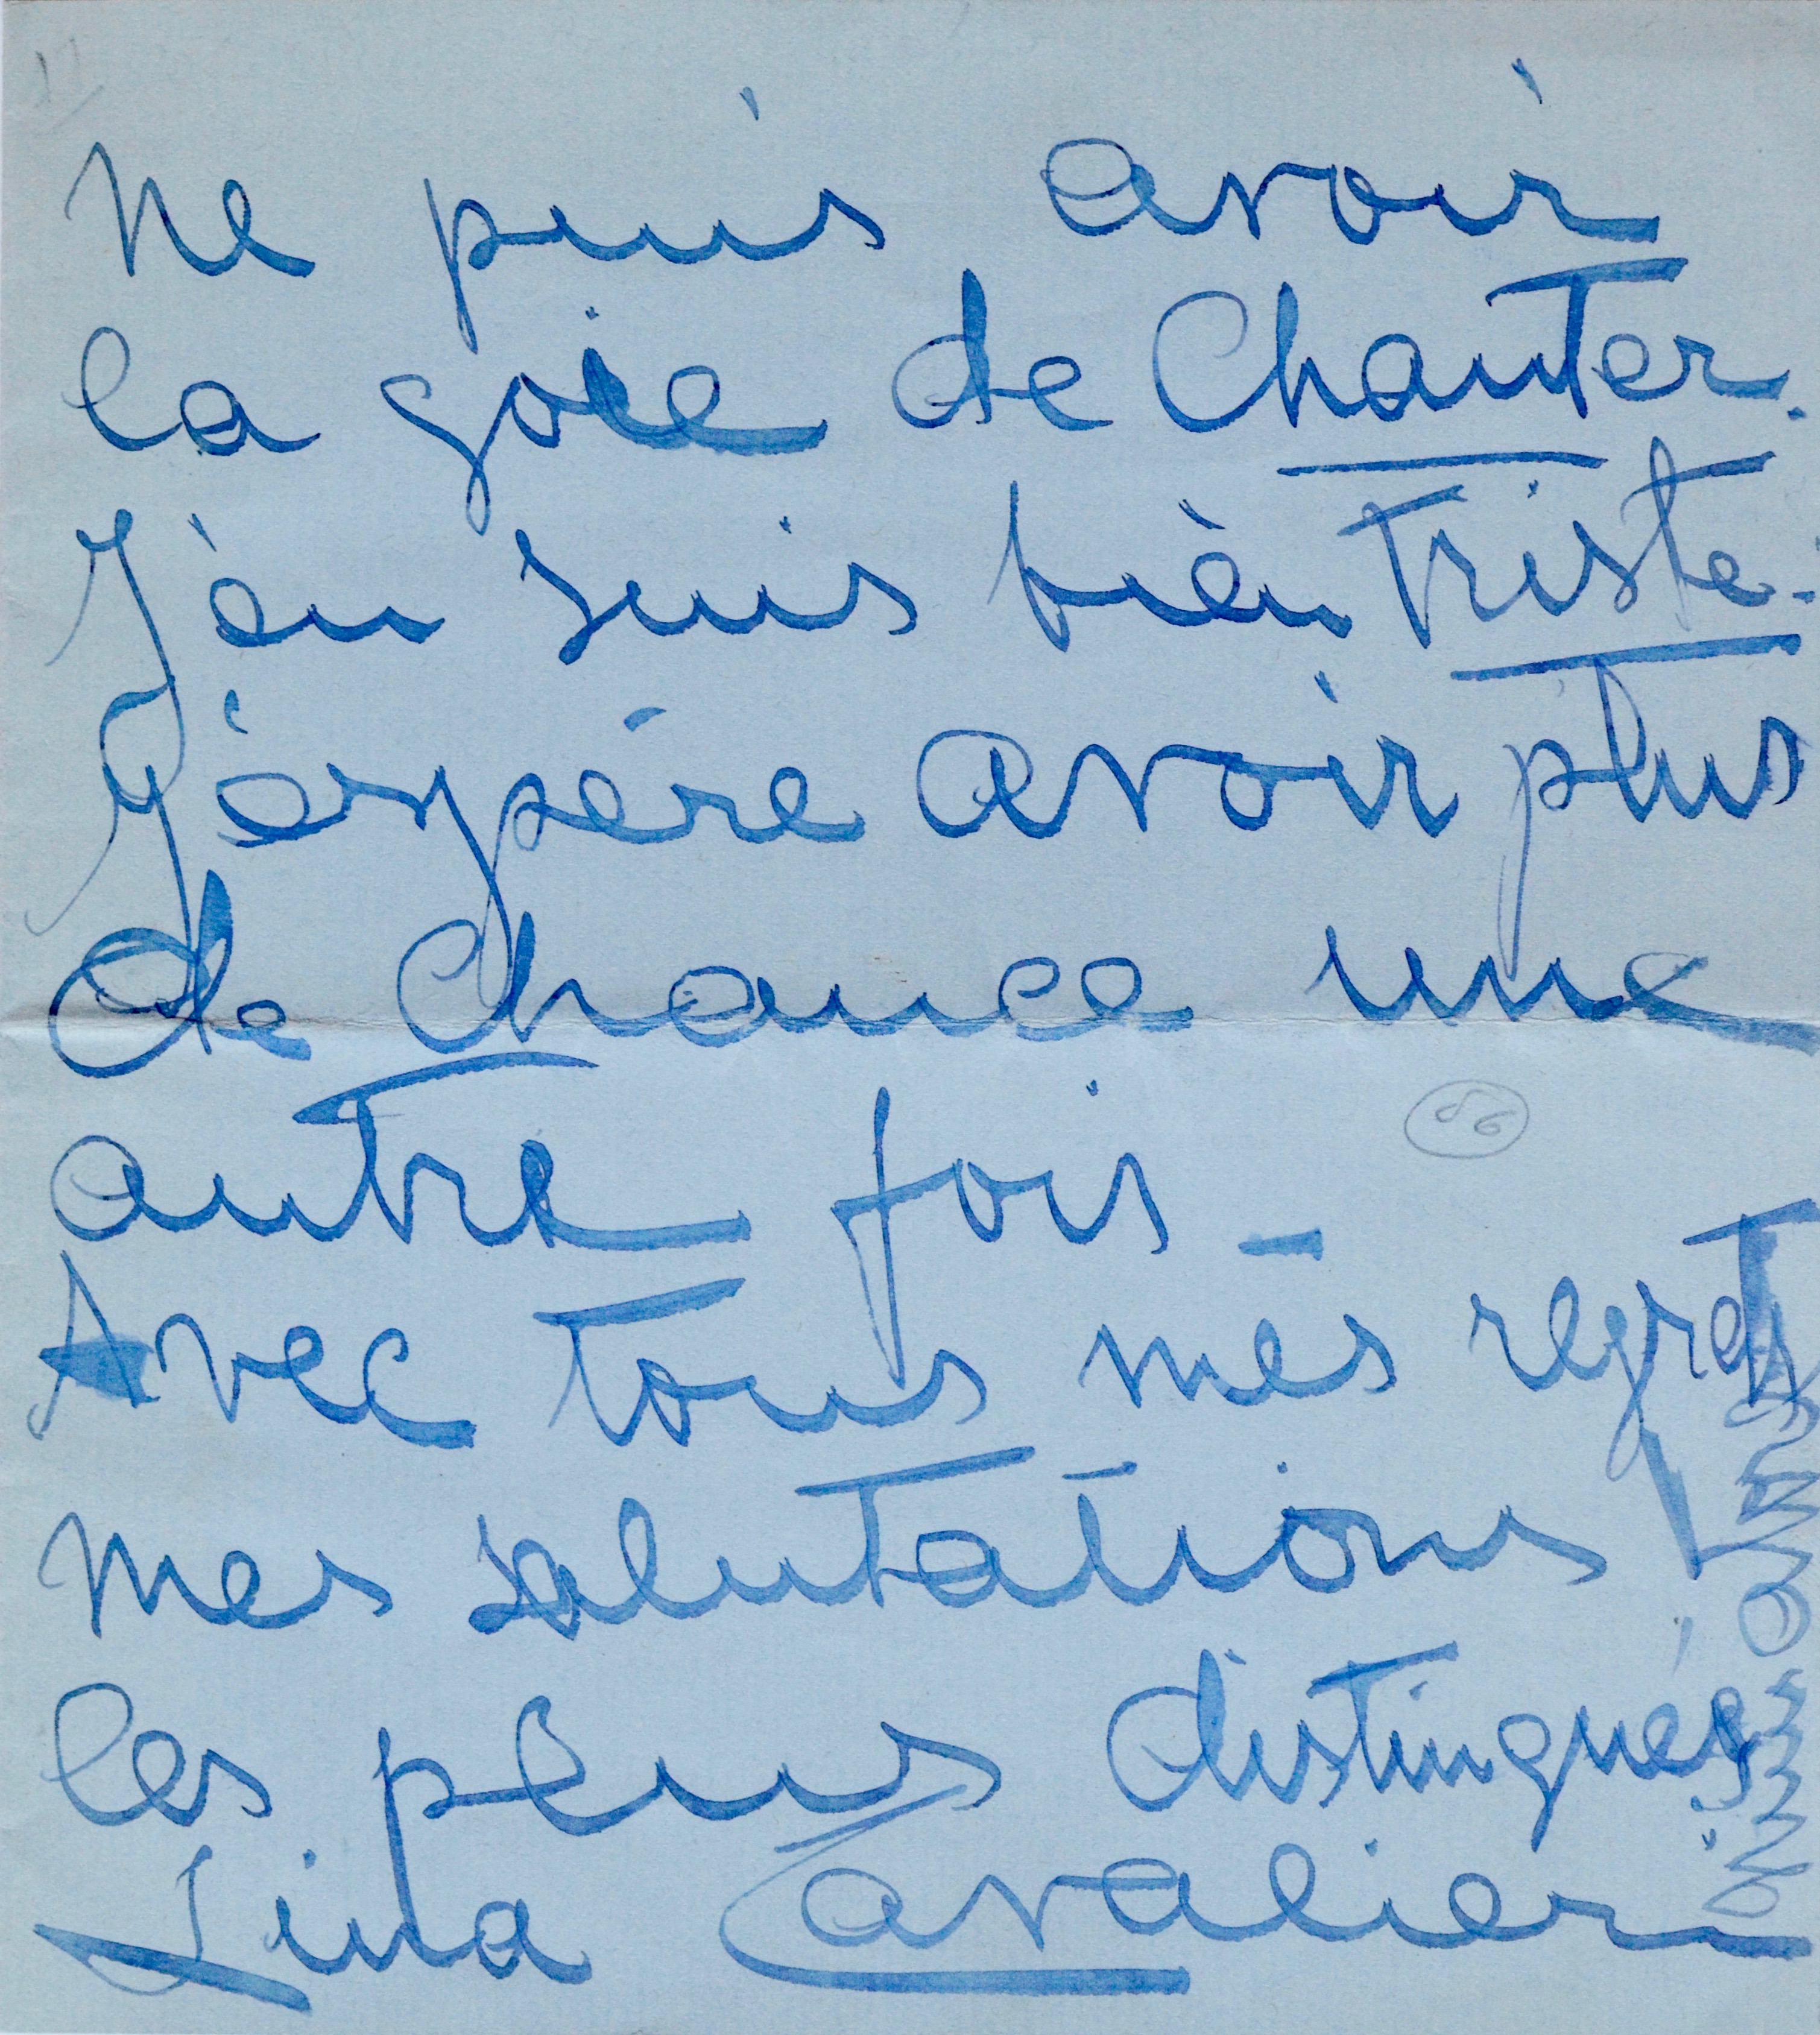 Ne puis avoir
la goie de Chanter.
J'en suis bien Triste.
J'éspére avoir plus
de Chance une
autre fois _
56
Avec tous mes regrets
mes salutations
les plus distingués
Lina Cavalieri